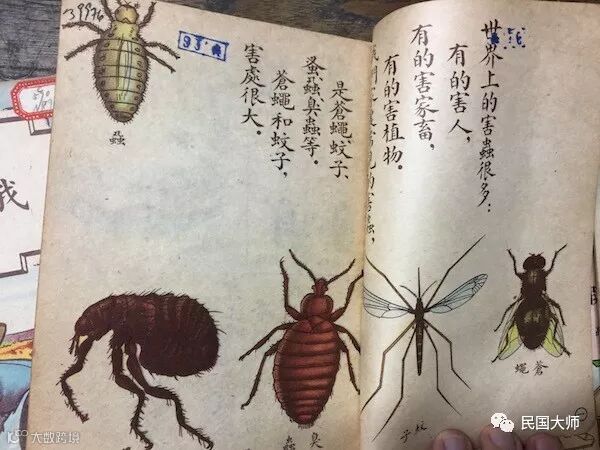 世界上的害蟲很多：
有的害人，
有的害家畜，
有的害植物。
我們
是蒼蠅、蚊子、
蚤蝨、臭蟲等。
蒼蠅和蚊子，
害處很大。
蒼蠅
蚊子
臭蟲
蝨
39976
我
民国大师
大数跨境